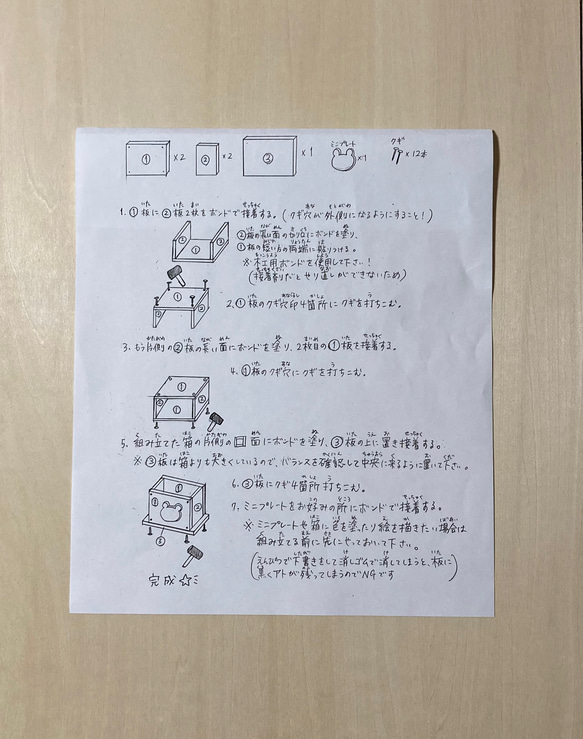 ① ×2 ② ×2 ③ ×1 ミニプレート ×1 クギ ×12本
1. ①板に②板2枚をボンドで接着する。(クギ穴が外側になるようにすること!)
②板の長い面の切り立にボンドを塗り、
①板の短い方の両端に貼りつける。
※木工用ボンドを使用して下さい!
(接着剤だとやり直しができないため)
2. ①板のクギ穴印4箇所にクギを打ちこむ。
3. もう片側の②板の長い面にボンドを塗り、2枚目の①板を接着する。
4. ①板のクギ穴にクギを打ちこむ。
5. 組み立てた箱の片側の 面にボンドを塗り、③板の上に置き接着する。
※③板は箱よりも大きくしているので、バランスを確認して中央に来るように置いて下さい。
6. ③板にクギ4箇所打ちこむ。
7. ミニプレートをお好みの所にボンドで接着する。
※ミニプレートや箱に色を塗ったり絵を描きたい場合は
組み立てる前に先にやっておいて下さい。
(えんぴつで下書きをして消しゴムで消してしまうと、板に
黒くアトが残ってしまうのでNGです)
完成☆